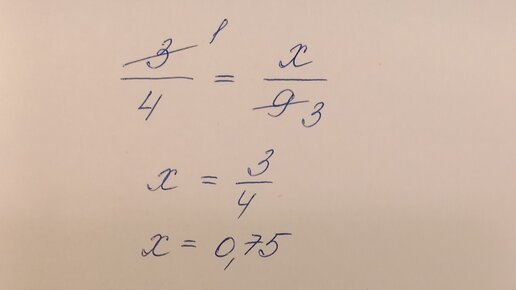 3/4 1 = x/9 3
x = 3/4
x = 0,75